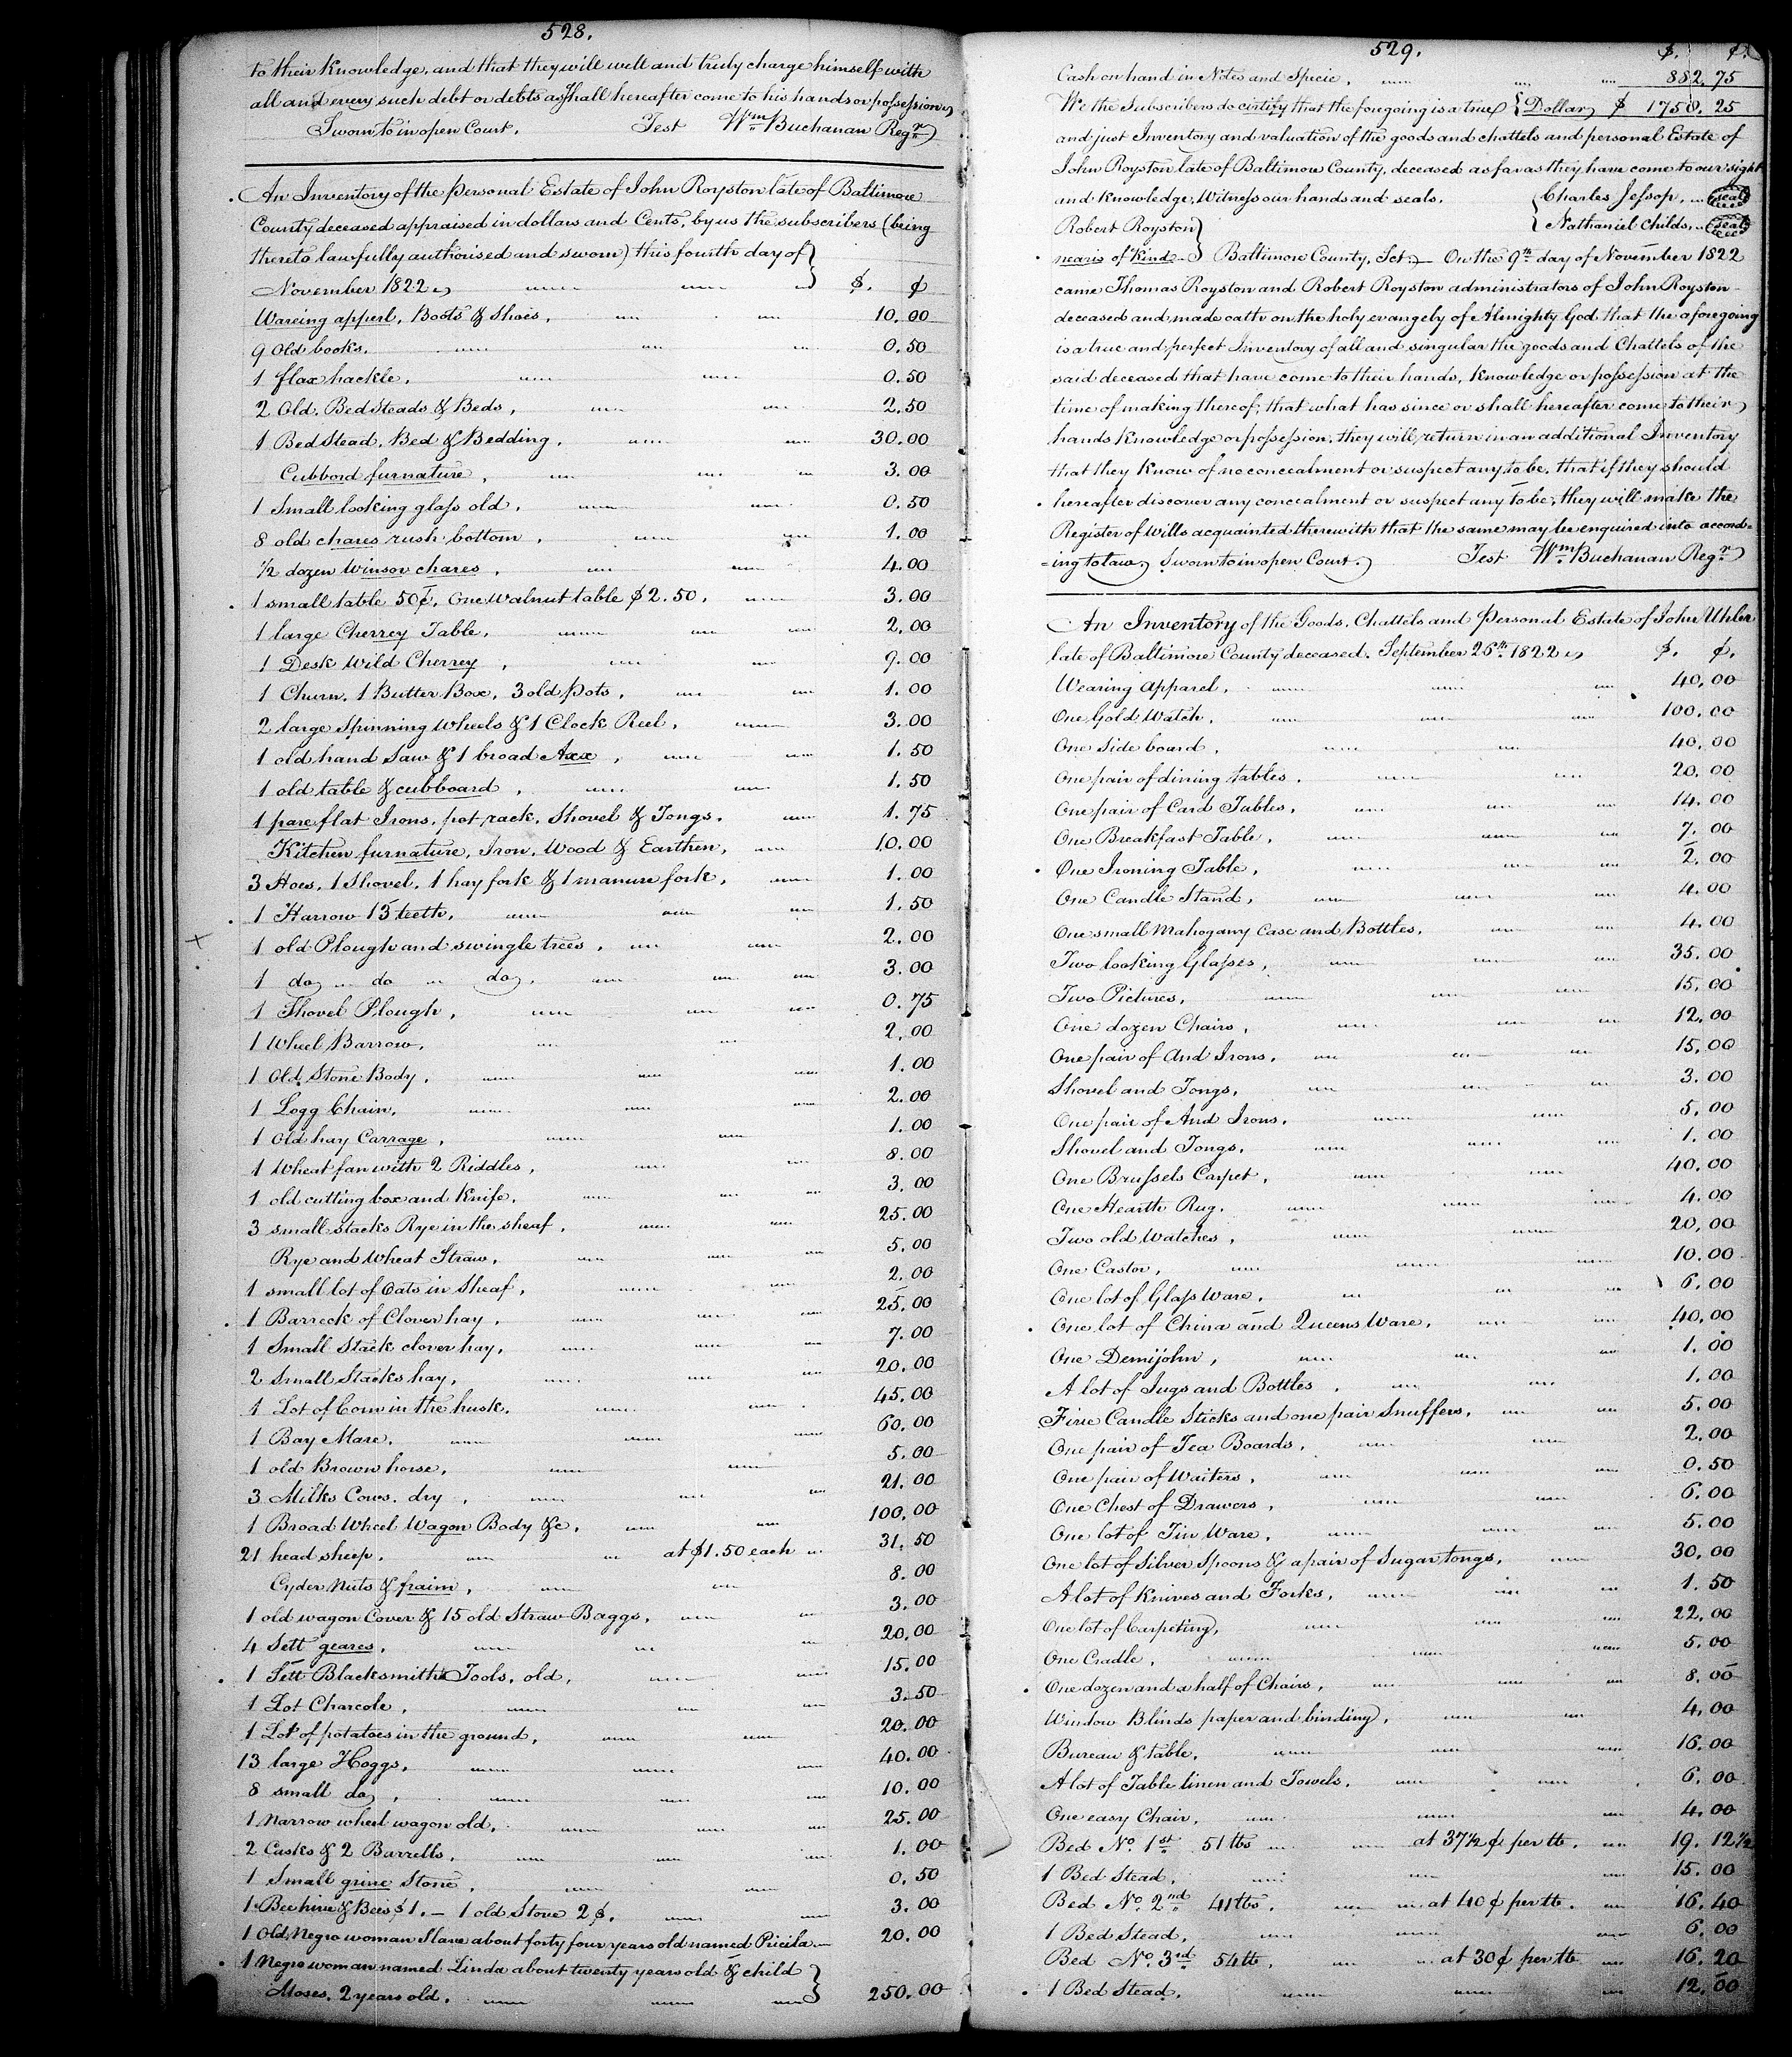 528.
to their Knowledge, and that they will well and truly charge himself with
all and every such debt or debts as shall hereafter come to his hands or possession
Sworn to in open Court. Test Wm Buchanan Regr
An Inventory of the personal Estate of John Royston late of Baltimore
County deceased appraised in dollars and Cents, by us the subscribers (being
thereto lawfully authorised and sworn) this fourth day of
November 1822 $. ¢
Wareing apperl, Boots & Shoes, 10.00
9 Old books. 0.50
1 flax hackle, 0.50
2 Old. Bed Steads & Beds, 2.50
1 Bed Stead, Bed & Bedding, 30.00
Cubbord furnature, 3.00
1 Small looking glass old, 0.50
8 old chares rush bottom, 1.00
1/2 dozen Winsor chares, 4.00
1 small table 50¢, One Walnut table $2.50, 3.00
1 large Cherrey Table, 2.00
1 Desk Wild Cherrey, 9.00
1 Churn, 1 Butter Box, 3 old pots, 1.00
2 large Spinning Wheels & 1 Clock Reel, 3.00
1 old hand Saw & 1 broad Axx, 1.50
1 old table & cubboard, 1.50
1 pare flat Irons, pot rack, Shovel & Tongs. 1.75
Kitchen furnature, Iron, Wood & Earthen, 10.00
3 Hoes, 1 Shovel, 1 hay fork & 1 manure fork, 1.00
1 Harrow 15 teeth, 1.50
1 old Plough and swingle trees, 2.00
1 do do do, 3.00
1 Shovel Plough, 0.75
1 Wheel Barrow, 2.00
1 Old Stone Body, 1.00
1 Logg Chain, 2.00
1 Old hay Carrage, 1.00
1 Wheat fan with 2 Riddles, 8.00
1 old cutting box and Knife, 3.00
3 small stacks Rye in the sheaf, 25.00
Rye and Wheat Straw, 5.00
1 small lot of Oats in Sheaf, 2.00
1 Barreck of Clover hay, 25.00
1 Small Stack clover hay, 7.00
2 Small Stacks hay, 20.00
1 Lot of Corn in the husk, 45.00
1 Bay Mare, 60.00
1 old Brown horse, 5.00
3 Milks Cows. dry, 21.00
1 Broad Wheel Wagon Body &c, 100.00
21 head sheep, at $1.50 each 31.50
Cyder Nuts & fraim, 8.00
1 old wagon Cover & 15 old Straw Baggs, 3.00
4 Sett geares, 20.00
1 Sett Blacksmiths Tools, old, 15.00
1 Lot Charcole, 3.50
1 Lot of potatoes in the ground, 20.00
13 large Hoggs, 40.00
8 small do, 10.00
1 Narrow wheel wagon old, 25.00
2 Casks & 2 Barrells, 1.00
1 Small grine Stone, 0.50
1 Bee hive & Bees $1. — 1 old Stove 2$. 3.00
1 Old Negro woman Slave about forty four years old named Pricila 20.00
1 Negro woman named Linda about twenty years old & child
Moses, 2 years old, 250.00
529. $. ¢.
Cash on hand in Notes and Specie, 882.75
We the Subscribers do certify that the foregoing is a true Dollars $ 1750.25
and just Inventory and valuation of the goods and chattels and personal Estate of
John Royston late of Baltimore County, deceased as far as they have come to our sight
and Knowledge, Witness our hands and seals. Charles Jessop, seal
Robert Royston Nathaniel Childs, seal
nearis of Kind Baltimore County, Sct. On the 9th day of November 1822
came Thomas Royston and Robert Royston administrators of John Royston
deceased and made oath on the holy evangely of Almighty God that the aforegoing
is a true and perfect Inventory of all and singular the goods and Chattels of the
said deceased that have come to their hands, Knowledge or possession at the
time of making thereof; that what has since or shall hereafter come to their
hands Knowledge or possession, they will return in an additional Inventory
that they Know of no concealment or suspect any to be, that if they should
hereafter discover any concealment or suspect any to be; they will make the
Register of Wills acquainted therewith that the same may be enquired into accord=
=ing to law, Sworn to in open Court. Test Wm Buchanan Regr
An Inventory of the Goods, Chattels and Personal Estate of John Uhler
late of Baltimore County deceased. September 26th 1822 $. ¢.
Wearing apparel, 40.00
One Gold Watch, 100.00
One Side board, 40.00
One pair of dining tables. 20.00
One pair of Card Tables, 14.00
One Breakfast Table, 7.00
One Ironing Table, 2.00
One Candle Stand, 4.00
One small Mahogany Case and Bottles, 4.00
Two looking Glasses, 35.00
Two Pictures, 15.00
One dozen Chairs, 12.00
One pair of And Irons, 15.00
Shovel and Tongs, 3.00
One pair of And Irons, 5.00
Shovel and Tongs, 1.00
One Brussels Carpet, 40.00
One Hearth Rug, 4.00
Two old Watches, 20.00
One Castor, 10.00
One lot of Glass Ware, 6.00
One lot of China and Queens Ware, 40.00
One Demijohn, 1.00
A lot of Jugs and Bottles, 1.00
Five Candle Sticks and one pair Snuffers, 5.00
One pair of Tea Boards, 2.00
One pair of Waiters, 0.50
One Chest of Drawers, 6.00
One lot of Tin Ware, 5.00
One lot of Silver Spoons & a pair of Sugar tongs, 30.00
A lot of Knives and Forks, 1.50
One lot of Carpeting, 22.00
One Cradle, 5.00
One dozen and a half of Chairs, 8.00
Window Blinds paper and binding, 4.00
Bureau & table, 16.00
A lot of Table linen and Towels, 6.00
One easy Chair, 4.00
Bed No. 1st 51 lbs at 37 1/2 ¢ per lb. 19.12 1/2
1 Bed Stead, 15.00
Bed No. 2nd 41 lbs. at 40 ¢ per lb. 16.40
1 Bed Stead, 6.00
Bed No. 3rd 54 lb, at 30 ¢ per lb 16.20
1 Bed Stead, 12.00